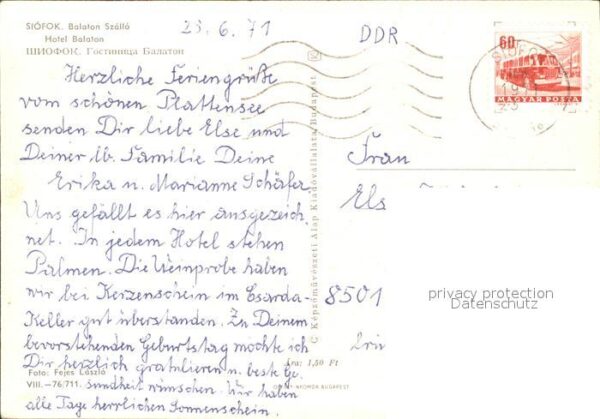 SIÓFOK. Balaton Szálló
Hotel Balaton
ШИОФОК. Гостиница Балатон
23.6.71
DDR
60
MAGYAR POSTA
SIÓFOK
Herzliche Feriengrüße
vom schönen Plattensee
senden Dir liebe Else und
Deiner lb. Familie Deine
Erika u. Marianne Schäfer.
Uns gefällt es hier ausgezeich
net. In jedem Hotel stehen
Palmen. Die Weinprobe haben
wir bei Kerzenschein im Csarda-
Keller gut überstanden. Zu Deinem
bevorstehenden Geburtstag möchte ich
Dir herzlich gratulieren u. beste Ge-
sundheit wünschen. Wir haben
alle Tage herrlichen Sonnenschein.
Foto: Fejes László
VIII.—76/711.
C Képzőművészeti Alap Kiadóvállalata, Budapest
Ára: 1,50 Ft
NYOMDA BUDAPEST
Frau
Els
8501
privacy protection
Datenschutz